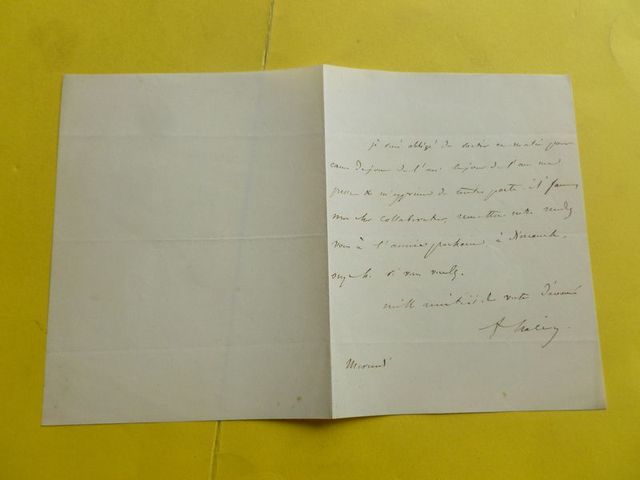 je suis obligé de sortir ce matin pour
cause de jour de l'an. le jour de l'an me
presse & m'opprime de toutes parts il faut,
mon cher collaborateur, remettre notre rendez
vous à l'année prochaine à Dimanche
si vous voulez.
mille amitiés de votre dévoué
F Halévy
Mercredi